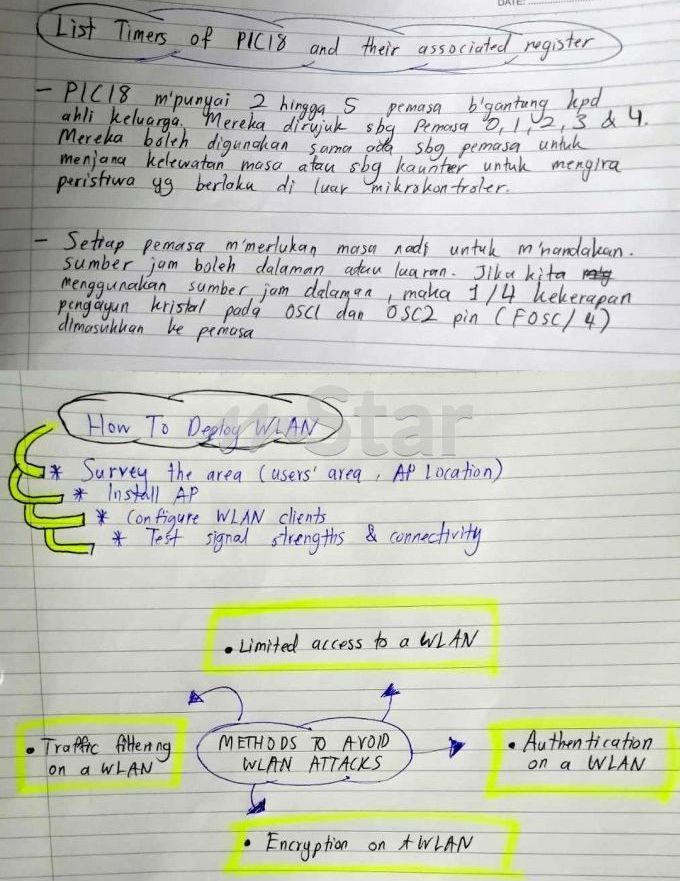 DATE:
List Timers of PIC18 and their associated register
- PIC18 m'punyai 2 hingga 5 pemasa b'gantung kpd
ahli keluarga. Mereka dirujuk sbg Pemasa 0, 1, 2, 3 & 4.
Mereka boleh digunakan sama ada sbg pemasa untuk
menjana kelewatan masa atau sbg kaunter untuk mengira
peristiwa yg berlaku di luar mikrokontroler.
- Setiap pemasa m'merlukan masa nadi untuk m'nandakan.
sumber jam boleh dalaman atau luaran. Jika kita
menggunakan sumber jam dalaman, maka 1/4 kekerapan
pengayun kristal pada OSC1 dan OSC2 pin (FOSC/4)
dimasukkan ke pemasa
mStar
How To Deploy WLAN
* Survey the area (users' area, AP Location)
* Install AP
* Configure WLAN clients
* Test signal strengths & connectivity
• Limited access to a WLAN
• Traffic filtering
on a WLAN
METHODS TO AVOID
WLAN ATTACKS
• Authentication
on a WLAN
• Encryption on A WLAN